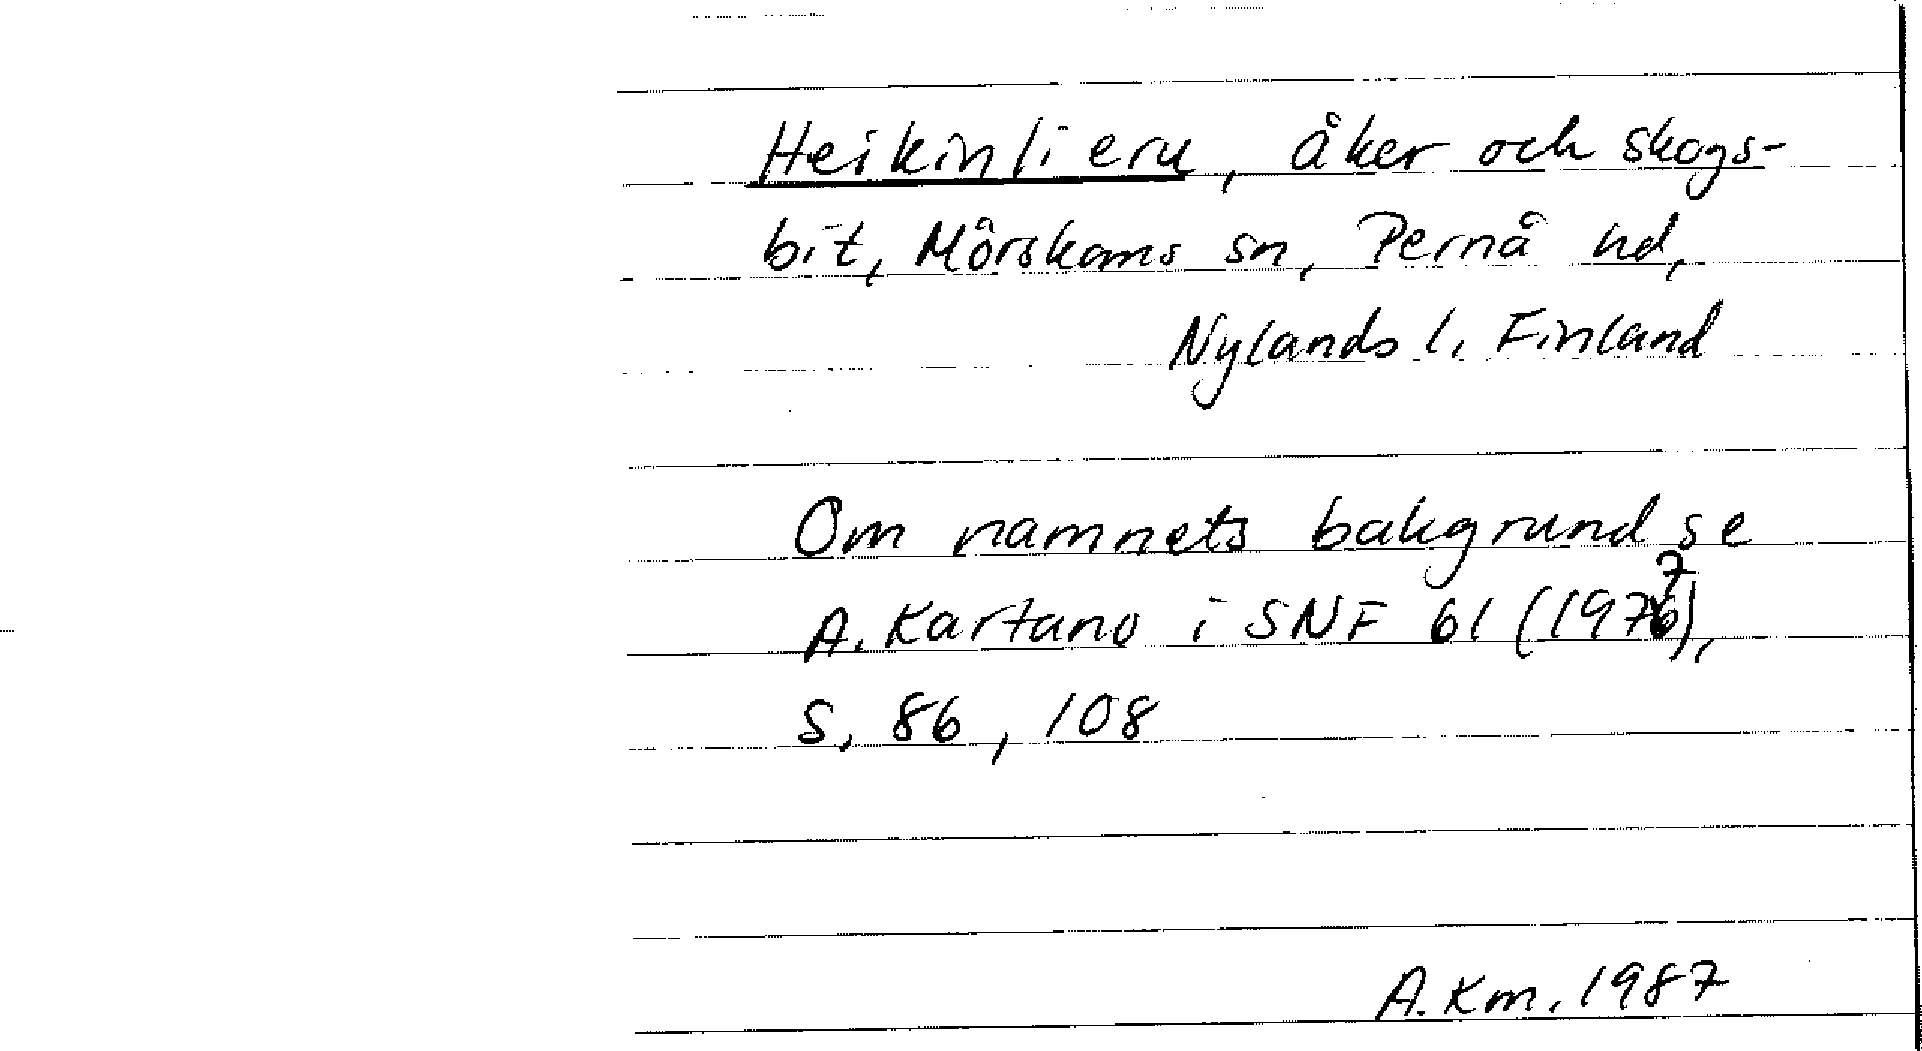 Heikinlieru, åker och skogs-
bit, Mörskoms sn, Pernå hd,
Nylands l, Finland
Om namnets bakgrund se
A. Kartano i SNF 61 (1977),
s. 86, 108
A. Km. 1987